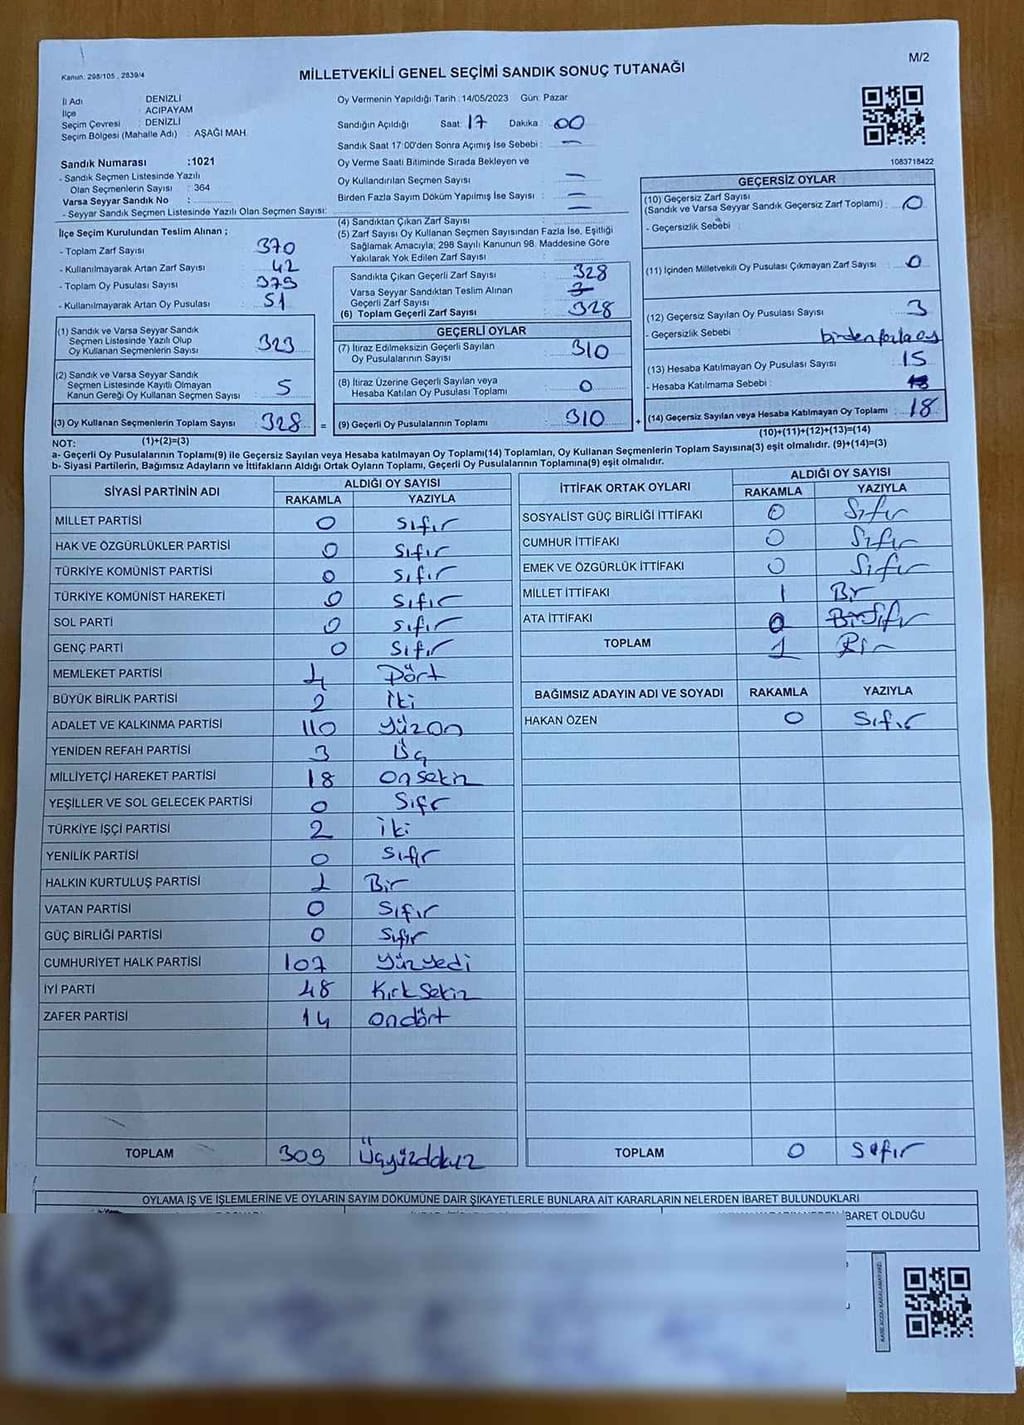 Kanun: 298/105 , 2839/4
MİLLETVEKİLİ GENEL SEÇİMİ SANDIK SONUÇ TUTANAĞI
M/2
İl Adı DENİZLİ
İlçe ACIPAYAM
Seçim Çevresi : DENİZLİ
Seçim Bölgesi (Mahalle Adı) : AŞAĞI MAH.
Sandık Numarası :1021
- Sandık Seçmen Listesinde Yazılı
Olan Seçmenlerin Sayısı : 364
Varsa Seyyar Sandık No :
- Seyyar Sandık Seçmen Listesinde Yazılı Olan Seçmen Sayısı:
Oy Vermenin Yapıldığı Tarih : 14/05/2023 Gün: Pazar
Sandığın Açıldığı Saat: 17 Dakika : 00
Sandık Saat 17:00'den Sonra Açımış İse Sebebi : —
Oy Verme Saati Bitiminde Sırada Bekleyen ve
Oy Kullandırılan Seçmen Sayısı : —
Birden Fazla Sayım Döküm Yapılmış İse Sayısı : —
1083718422
İlçe Seçim Kurulundan Teslim Alınan ;
- Toplam Zarf Sayısı 370
- Kullanılmayarak Artan Zarf Sayısı : 42
- Toplam Oy Pusulası Sayısı : 379
- Kullanılmayarak Artan Oy Pusulası : 51
(1) Sandık ve Varsa Seyyar Sandık
Seçmen Listesinde Yazılı Olup
Oy Kullanan Seçmenlerin Sayısı : 323
(2) Sandık ve Varsa Seyyar Sandık
Seçmen Listesinde Kayıtlı Olmayan
Kanun Gereği Oy Kullanan Seçmen Sayısı : 5
(3) Oy Kullanan Seçmenlerin Toplam Sayısı : 328 =
(4) Sandıktan Çıkan Zarf Sayısı —
(5) Zarf Sayısı Oy Kullanan Seçmen Sayısından Fazla İse, Eşitliği
Sağlamak Amacıyla; 298 Sayılı Kanunun 98. Maddesine Göre
Yakılarak Yok Edilen Zarf Sayısı
Sandıkta Çıkan Geçerli Zarf Sayısı : 328
Varsa Seyyar Sandıktan Teslim Alınan
Geçerli Zarf Sayısı
(6) Toplam Geçerli Zarf Sayısı : 328
GEÇERLİ OYLAR
(7) İtiraz Edilmeksizin Geçerli Sayılan
Oy Pusulalarının Sayısı : 310
(8) İtiraz Üzerine Geçerli Sayılan veya
Hesaba Katılan Oy Pusulası Toplamı : 0
(9) Geçerli Oy Pusulalarının Toplamı : 310 +
GEÇERSİZ OYLAR
(10) Geçersiz Zarf Sayısı
(Sandık ve Varsa Seyyar Sandık Geçersiz Zarf Toplamı) : 0
- Geçersizlik Sebebi :
(11) İçinden Milletvekili Oy Pusulası Çıkmayan Zarf Sayısı : 0
(12) Geçersiz Sayılan Oy Pusulası Sayısı : 3
- Geçersizlik Sebebi : birden fazla oy
(13) Hesaba Katılmayan Oy Pusulası Sayısı : 15
- Hesaba Katılmama Sebebi :
(14) Geçersiz Sayılan veya Hesaba Katılmayan Oy Toplamı : 18
(10)+(11)+(12)+(13)=(14)
NOT: (1)+(2)=(3)
a- Geçerli Oy Pusulalarının Toplamı(9) ile Geçersiz Sayılan veya Hesaba katılmayan Oy Toplamı(14) Toplamları, Oy Kullanan Seçmenlerin Toplam Sayısına(3) eşit olmalıdır. (9)+(14)=(3)
b- Siyasi Partilerin, Bağımsız Adayların ve İttifakların Aldığı Ortak Oyların Toplamı, Geçerli Oy Pusulalarının Toplamına(9) eşit olmalıdır.
SİYASİ PARTİNİN ADI ALDIĞI OY SAYISI
RAKAMLA YAZIYLA
MİLLET PARTİSİ 0 Sıfır
HAK VE ÖZGÜRLÜKLER PARTİSİ 0 Sıfır
TÜRKİYE KOMÜNİST PARTİSİ 0 Sıfır
TÜRKİYE KOMÜNİST HAREKETİ 0 Sıfır
SOL PARTİ 0 Sıfır
GENÇ PARTİ 0 Sıfır
MEMLEKET PARTİSİ 4 Dört
BÜYÜK BİRLİK PARTİSİ 2 İki
ADALET VE KALKINMA PARTİSİ 110 Yüzon
YENİDEN REFAH PARTİSİ 3 Üç
MİLLİYETÇİ HAREKET PARTİSİ 18 Onsekiz
YEŞİLLER VE SOL GELECEK PARTİSİ 0 Sıfır
TÜRKİYE İŞÇİ PARTİSİ 2 iki
YENİLİK PARTİSİ 0 Sıfır
HALKIN KURTULUŞ PARTİSİ 1 Bir
VATAN PARTİSİ 0 Sıfır
GÜÇ BİRLİĞİ PARTİSİ 0 Sıfır
CUMHURİYET HALK PARTİSİ 107 Yüzyedi
İYİ PARTİ 48 Kırk Sekiz
ZAFER PARTİSİ 14 Ondört
TOPLAM 309 Üçyüzdokuz
İTTİFAK ORTAK OYLARI ALDIĞI OY SAYISI
RAKAMLA YAZIYLA
SOSYALİST GÜÇ BİRLİĞİ İTTİFAKI 0 Sıfır
CUMHUR İTTİFAKI 0 Sıfır
EMEK VE ÖZGÜRLÜK İTTİFAKI 0 Sıfır
MİLLET İTTİFAKI 1 Bir
ATA İTTİFAKI 0 Bir Sıfır
TOPLAM 1 Bir
BAĞIMSIZ ADAYIN ADI VE SOYADI RAKAMLA YAZIYLA
HAKAN ÖZEN 0 Sıfır
TOPLAM 0 Sıfır
OYLAMA İŞ VE İŞLEMLERİNE VE OYLARIN SAYIM DÖKÜMÜNE DAİR ŞİKAYETLERLE BUNLARA AİT KARARLARIN NELERDEN İBARET BULUNDUKLARI
İBARET OLDUĞU